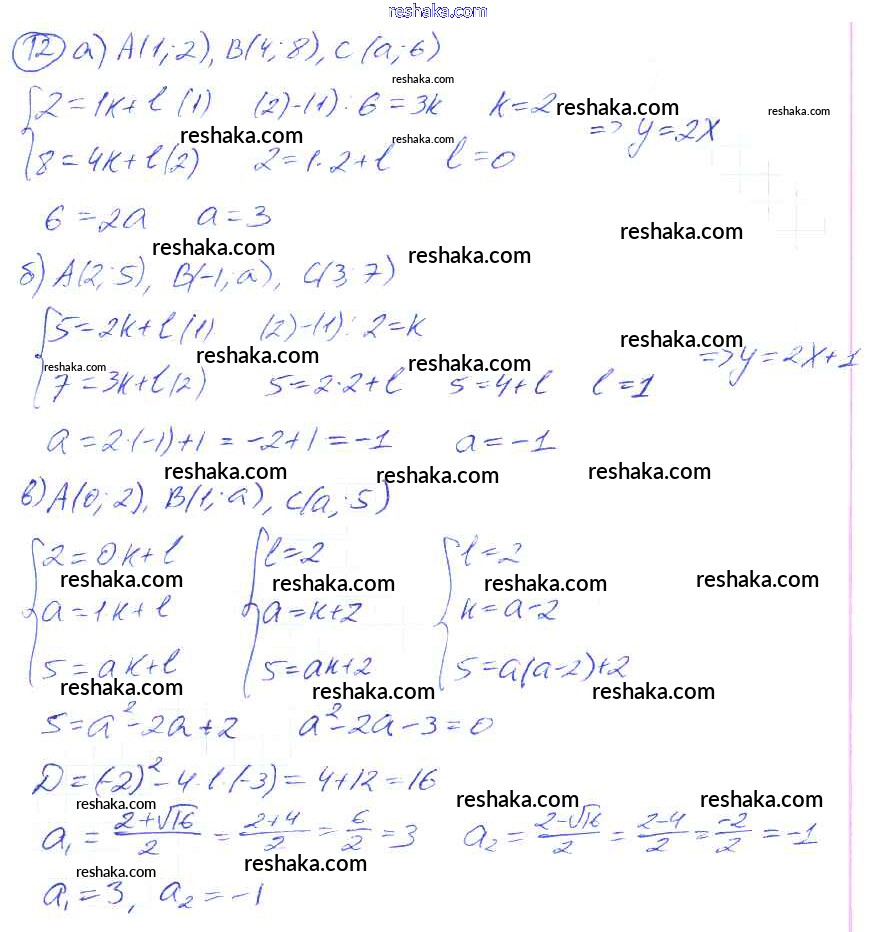 reshaka.com
12 а) A(1; 2), B(4; 8), C(a; 6)
reshaka.com
{ 2 = 1k + l (1) (2)-(1): 6 = 3k k = 2 reshaka.com reshaka.com
reshaka.com reshaka.com => y = 2x
8 = 4k + l (2) 2 = 1·2 + l l = 0
6 = 2a a = 3 reshaka.com
reshaka.com reshaka.com
б) A(2; 5), B(-1; a), C(3; 7)
{ 5 = 2k + l (1) (2)-(1): 2 = k reshaka.com
reshaka.com reshaka.com reshaka.com => y = 2x + 1
7 = 3k + l (2) 5 = 2·2 + l 5 = 4 + l l = 1
a = 2·(-1) + 1 = -2 + 1 = -1 a = -1
reshaka.com reshaka.com reshaka.com
в) A(0; 2), B(1; a), C(a; 5)
{ 2 = 0k + l { l = 2 { l = 2
reshaka.com reshaka.com reshaka.com reshaka.com
a = 1k + l a = k + 2 k = a - 2
5 = ak + l 5 = ak + 2 5 = a(a - 2) + 2
reshaka.com reshaka.com reshaka.com
5 = a² - 2a + 2 a² - 2a - 3 = 0
D = (-2)² - 4·1·(-3) = 4 + 12 = 16
reshaka.com reshaka.com reshaka.com
a₁ = (2+√16)/2 = (2+4)/2 = 6/2 = 3 a₂ = (2-√16)/2 = (2-4)/2 = -2/2 = -1
reshaka.com reshaka.com
a₁ = 3, a₂ = -1